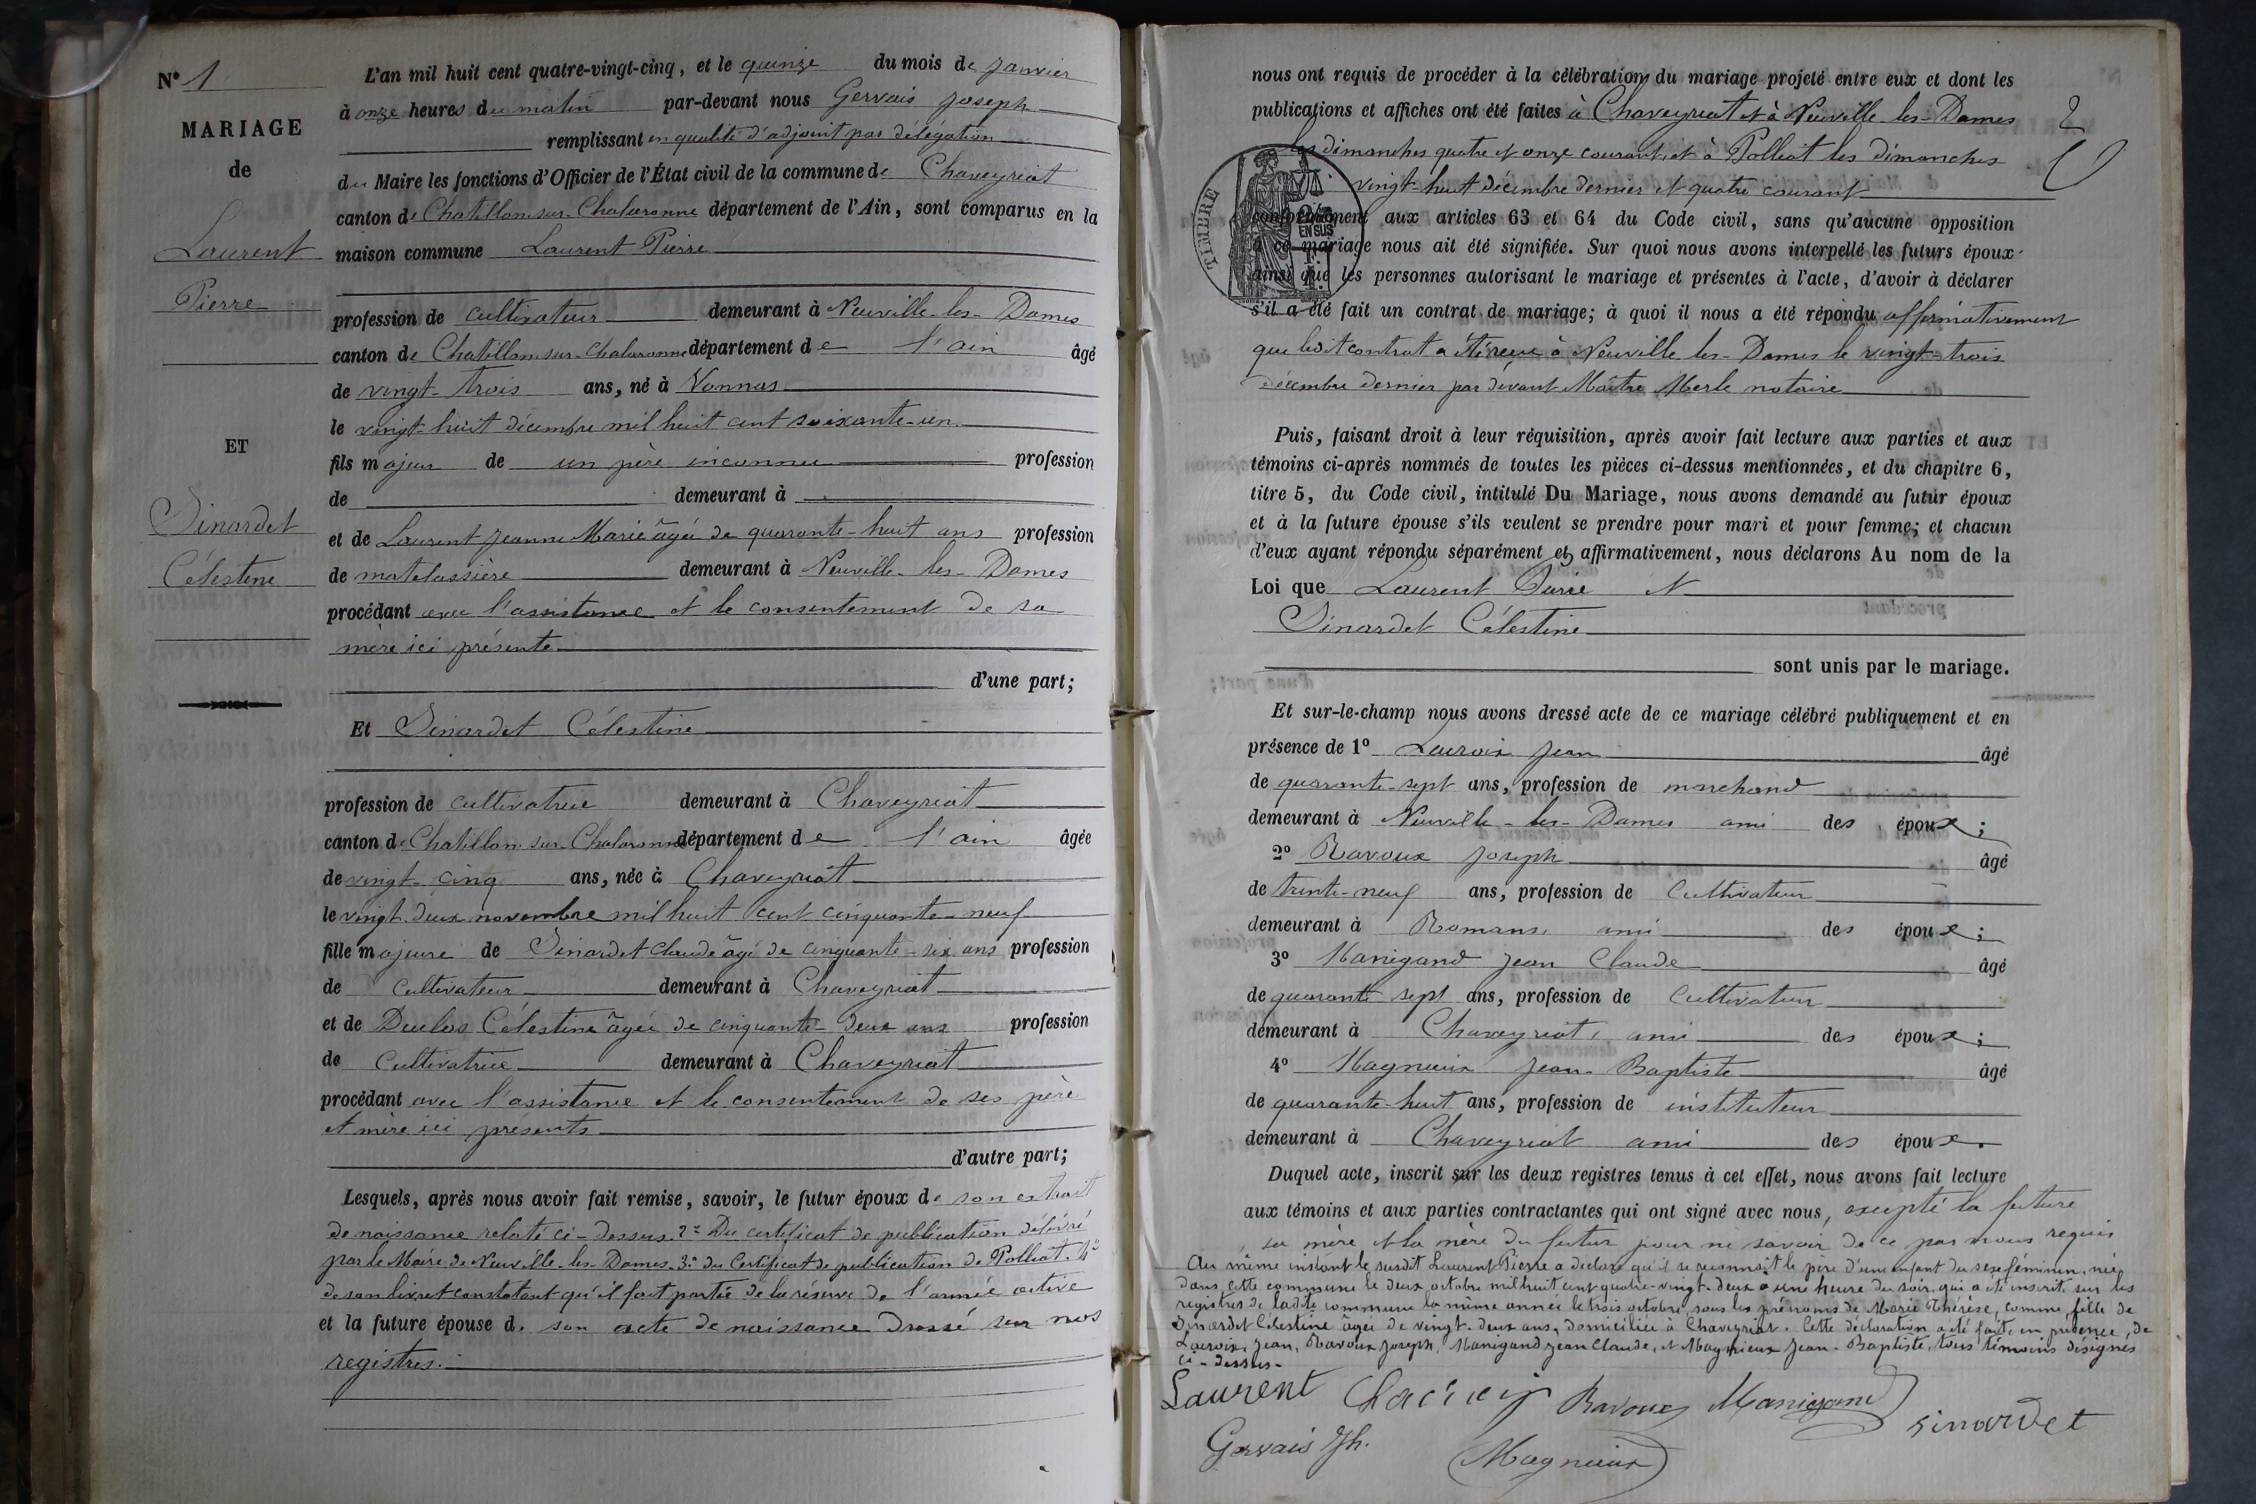 N° 1
MARIAGE
de
Laurent
Pierre
ET
Sinardet
Célestine
L'an mil huit cent quatre-vingt-cinq, et le quinze du mois de janvier
à onze heures du matin par-devant nous Gervais Joseph
remplissant en qualité d'adjoint par délégation
du Maire les fonctions d'Officier de l'État civil de la commune de Chaveyriat
canton de Chatillon-sur-Chalaronne département de l'Ain, sont comparus en la
maison commune Laurent Pierre
profession de cultivateur demeurant à Neuville-les-Dames
canton de Chatillon-sur-Chalaronne département de l'ain âgé
de vingt-trois ans, né à Vonnas
le vingt-huit décembre mil huit cent soixante-un
fils majeur de un père inconnu profession
de demeurant à
et de Laurent Jeanne Marie âgée de quarante-huit ans profession
de matelassière demeurant à Neuville-les-Dames
procédant avec l'assistance et le consentement de sa
mère ici présente
d'une part;
Et Sinardet Célestine
profession de cultivatrice demeurant à Chaveyriat
canton de Chatillon-sur-Chalaronne département de l'ain âgée
de vingt-cinq ans, née à Chaveyriat
le vingt-deux novembre mil huit cent cinquante-neuf
fille majeure de Sinardet Claude âgé de cinquante-six ans profession
de cultivateur demeurant à Chaveyriat
et de Duclos Célestine âgée de cinquante-deux ans profession
de cultivatrice demeurant à Chaveyriat
procédant avec l'assistance et le consentement de ses père
et mère ici présents
d'autre part;
Lesquels, après nous avoir fait remise, savoir, le futur époux de son extrait
de naissance relaté ci-dessus. 2° Du certificat de publication délivré
par le Maire de Neuville-les-Dames. 3° du Certificat de publication de Polliat. 4°
de son livret constatant qu'il fait partie de la réserve de l'armée active
et la future épouse d. son acte de naissance dressé sur nos
registres.
nous ont requis de procéder à la célébration du mariage projeté entre eux et dont les
publications et affiches ont été faites à Chaveyriat et à Neuville-les-Dames
les dimanches quatre et onze courant et à Polliat les dimanches
vingt-huit décembre dernier et quatre courant
TIMBRE
EN SUS
conformément aux articles 63 et 64 du Code civil, sans qu'aucune opposition
à ce mariage nous ait été signifiée. Sur quoi nous avons interpellé les futurs époux
ainsi que les personnes autorisant le mariage et présentes à l'acte, d'avoir à déclarer
s'il a été fait un contrat de mariage; à quoi il nous a été répondu affirmativement
que ledit contrat a été reçu à Neuville-les-Dames le vingt-trois
décembre dernier par devant Maître Merle notaire
Puis, faisant droit à leur réquisition, après avoir fait lecture aux parties et aux
témoins ci-après nommés de toutes les pièces ci-dessus mentionnées, et du chapitre 6,
titre 5, du Code civil, intitulé Du Mariage, nous avons demandé au futur époux
et à la future épouse s'ils veulent se prendre pour mari et pour femme; et chacun
d'eux ayant répondu séparément et affirmativement, nous déclarons Au nom de la
Loi que Laurent Pierre et
Sinardet Célestine
sont unis par le mariage.
Et sur-le-champ nous avons dressé acte de ce mariage célébré publiquement et en
présence de 1° Lacroix Jean âgé
de quarante-sept ans, profession de marchand
demeurant à Neuville-les-Dames ami des époux;
2° Ravoux Joseph âgé
de trente-neuf ans, profession de cultivateur
demeurant à Romans, ami des époux;
3° Manigand Jean Claude âgé
de quarante sept ans, profession de cultivateur
demeurant à Chaveyriat, ami des époux;
4° Magnieux Jean-Baptiste âgé
de quarante-huit ans, profession de instituteur
demeurant à Chaveyriat ami des époux.
Duquel acte, inscrit sur les deux registres tenus à cet effet, nous avons fait lecture
aux témoins et aux parties contractantes qui ont signé avec nous, excepté la future
, sa mère et la mère du futur pour ne savoir de ce par nous requis
Au même instant le susdit Laurent Pierre a déclaré qu'il se reconnait le père d'une enfant du sexe féminin, née
dans cette commune le deux octobre mil huit cent quatre-vingt-deux à une heure du soir, qui a été inscrit sur les
registres de ladite commune la même année le trois octobre, sous les prénoms de Marie Thérèse, comme fille de
Sinardet Célestine âgée de vingt-deux ans, domiciliée à Chaveyriat. Cette déclaration a été faite en présence, de
Lacroix, Jean, Ravoux Joseph, Manigand Jean Claude, et Magnieux Jean-Baptiste, tous témoins désignés
ci-dessus-
Laurent Lacroix Ravoux Manigand Sinardet
Gervais Jh. Magnieux